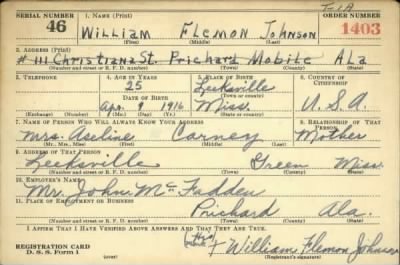 T-1A
SERIAL NUMBER 1. NAME (Print) ORDER NUMBER
46 William Flemon Johnson 1403
(First) (Middle) (Last)
2. ADDRESS (Print)
# 111 Christiana St. Prichard Mobile Ala
(Number and street or R. F. D. number) (Town) (County) (State)
3. TELEPHONE 4. AGE IN YEARS 5. PLACE OF BIRTH 6. COUNTRY OF CITIZENSHIP
25 Leeksville
DATE OF BIRTH (Town or county)
Apr. 9 1916 Miss. U.S.A.
(Exchange) (Number) (Mo.) (Day) (Yr.) (State or country)
7. NAME OF PERSON WHO WILL ALWAYS KNOW YOUR ADDRESS 8. RELATIONSHIP OF THAT PERSON
Mrs. Aseline Carney Mother
(Mr., Mrs., Miss) (First) (Middle) (Last)
9. ADDRESS OF THAT PERSON
Leeksville Green Miss.
(Number and street or R. F. D. number) (Town) (County) (State)
10. EMPLOYER'S NAME
Mr. John McFadden
11. PLACE OF EMPLOYMENT OR BUSINESS
Prichard Ala.
(Number and street or R. F. D. number) (Town) (County) (State)
I AFFIRM THAT I HAVE VERIFIED ABOVE ANSWERS AND THAT THEY ARE TRUE.
REGISTRATION CARD (His mark) X William Flemon Johnson
D. S. S. Form 1 (over) (Registrant's signature)